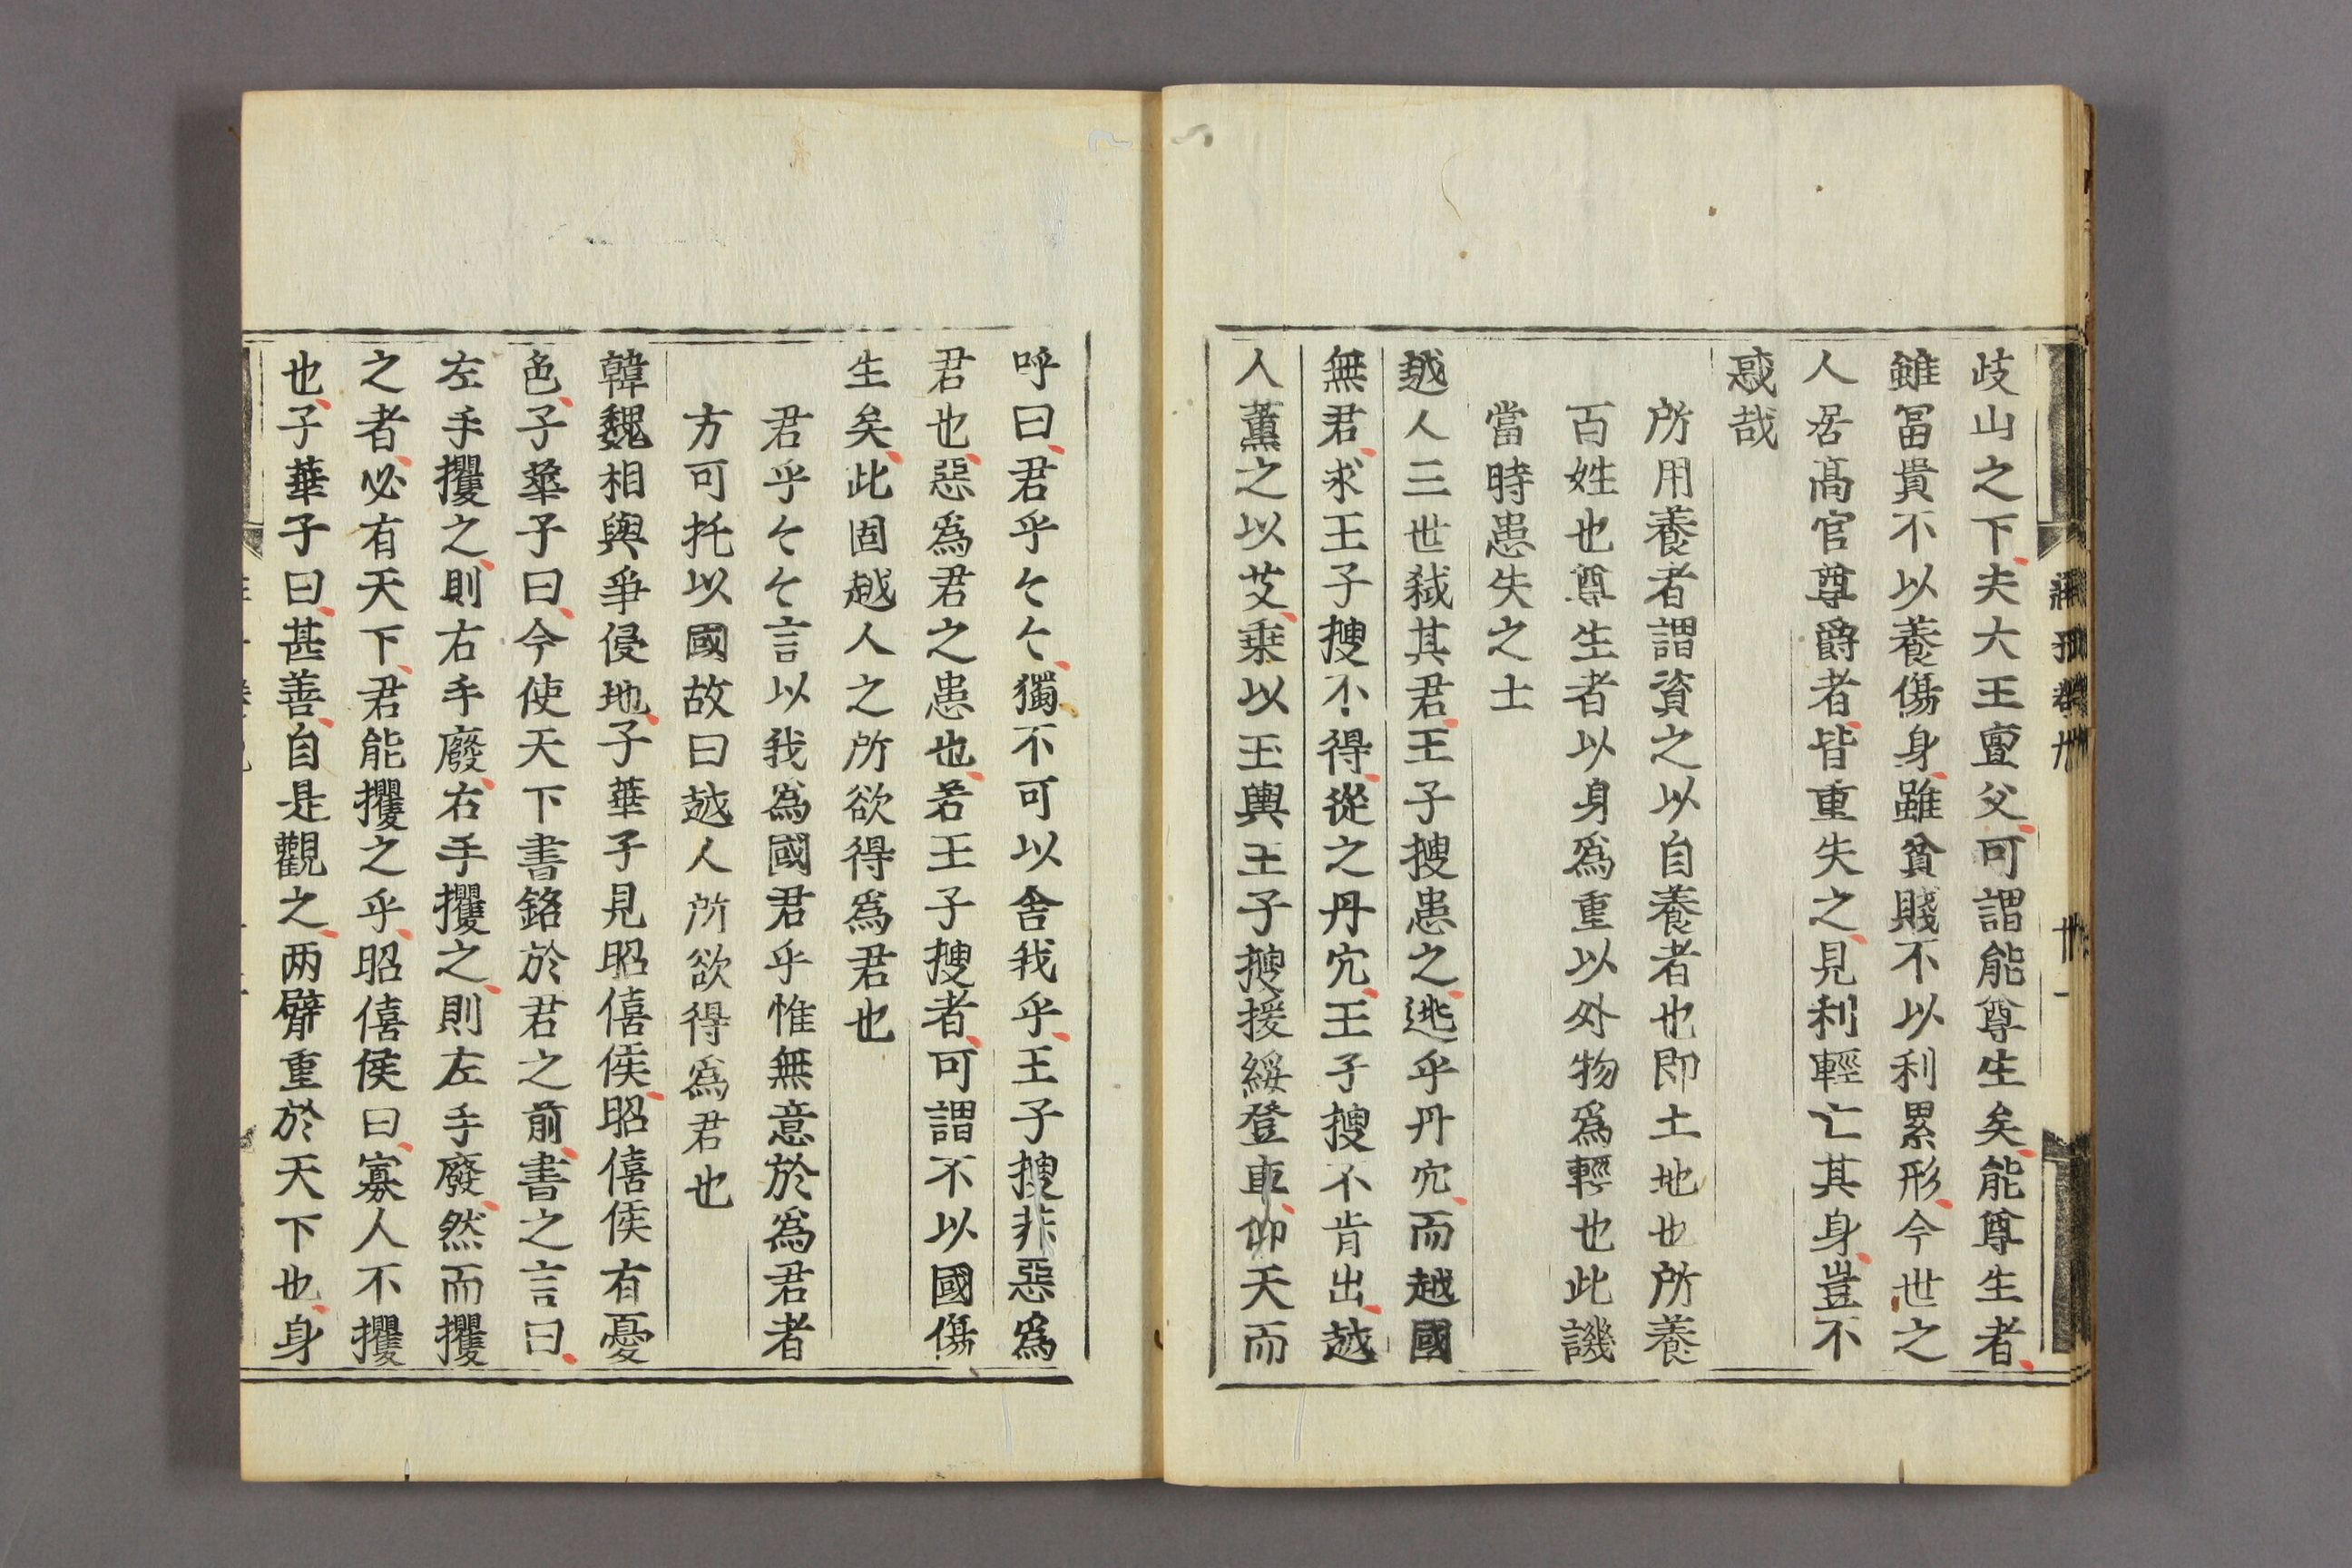 歧山之下夫大王亶父可謂能尊生矣能尊生者
雖冨貴不以養傷身雖貧賤不以利累形今世之
人居髙官尊爵者皆重失之見利輕亡其身豈不
惑哉
所用養者謂資之以自養者也即土地也所養
百姓也尊生者以身爲重以外物爲輕也此譏
當時患失之士
越人三世弑其君王子搜患之逃乎丹穴而越國
無君求王子搜不得從之丹穴王子搜不肯出越
人薫之以艾乗以玉輿王子搜援綏登車仰天而
呼曰君乎〻〻獨不可以舍我乎王子搜非惡爲
君也惡爲君之患也若王子搜者可謂不以國傷
生矣此固越人之所欲得爲君也
君乎〻〻言以我爲國君乎惟無意於爲君者
方可托以國故曰越人所欲得爲君也
韓魏相與爭侵地子華子見昭僖侯昭僖侯有憂
色子華子曰今使天下書銘於君之前書之言曰
左手攫之則右手廢右手攫之則左手廢然而攫
之者必有天下君能攫之乎昭僖侯曰寡人不攫
也子華子曰甚善自是觀之兩臂重於天下也身